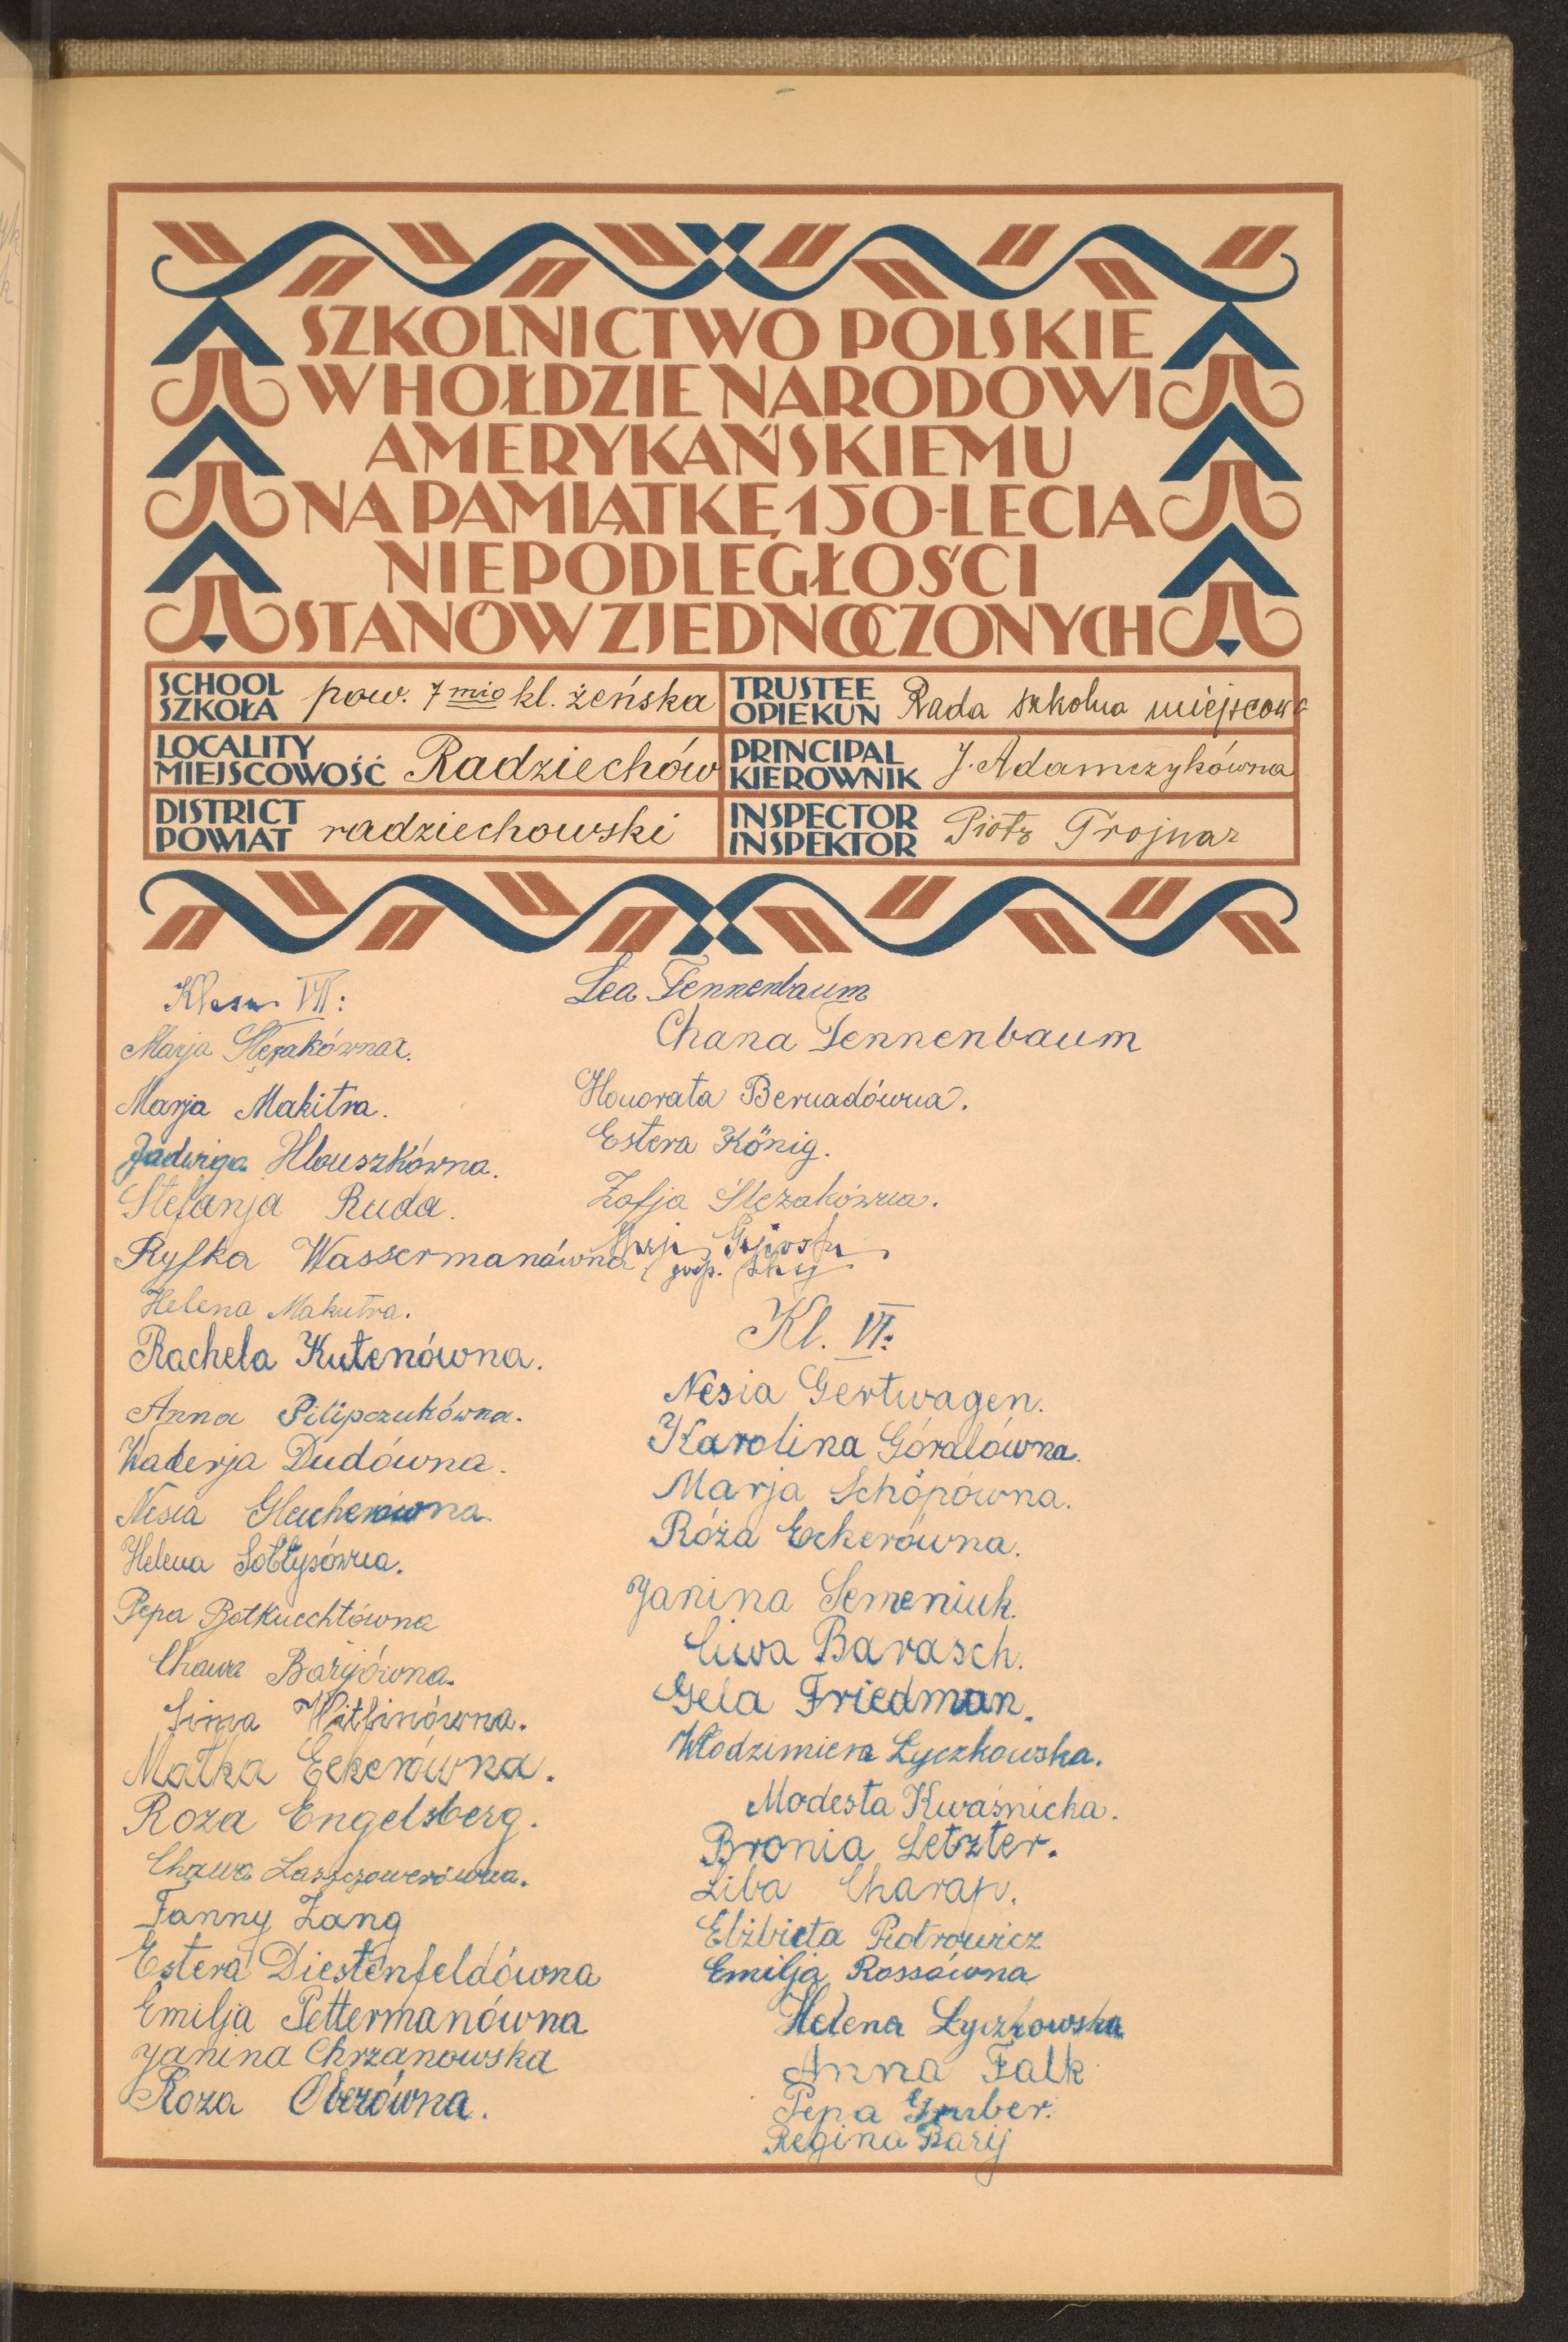 SZKOLNICTWO POLSKIE
W HOŁDZIE NARODOWI
AMERYKAŃSKIEMU
NA PAMIĄTKĘ 150-LECIA
NIEPODLEGŁOŚCI
STANÓW ZJEDNOCZONYCH
SCHOOL
SZKOŁA pow. 7mio kl. żeńska
TRUSTEE
OPIEKUN Rada szkolna miejscowa
LOCALITY
MIEJSCOWOŚĆ Radziechów
PRINCIPAL
KIEROWNIK J. Adamczykówna
DISTRICT
POWIAT radziechowski
INSPECTOR
INSPEKTOR Piotr Trojnar
Klasa VII:
Marja
Marja Makitra.
Jadwiga Hlouszkówna.
Stefanja Ruda.
Ryfka Wassermanówna
Helena Makutra.
Rachela Kutenówna.
Anna Pilipczukówna.
Walerja Dudówna.
Nesia
Helena Sołtysówna.
Pepa
Chawa Baryjówna.
Sima Witlinówna.
Małka Eckerówna.
Roza Engelsberg.
Chawa Laszczowerówna.
Fanny Zang
Estera Diestenfeldówna
Emilja Pettermanówna
Janina Chrzanowska
Roza Oberówna.
Lea Tennenbaum
Chana Tennenbaum
Honorata Bernadówna.
Estera König.
Zofja Ślęzakówna.
Kl. VI:
Nesia Gertwagen.
Karolina Góralówna.
Marja Schöpówna.
Róża Eckerówna.
Janina Semeniuk.
Ciwa Barasch.
Gela Friedman.
Włodzimiera Łyczkowska.
Modesta Kwaśnicka.
Bronia Letzter.
Liba Charap.
Elżbieta Piotrowicz
Emilja Rossówna
Helena Łyczkowska
Anna Falk
Pepa Gruber.
Regina Baryj